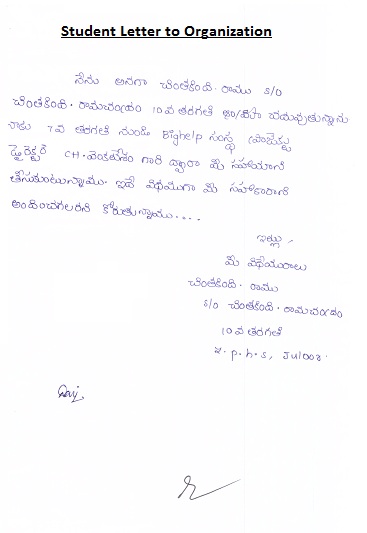 Student Letter to Organization
నేను అనగా చింతకింది. రాము S/O
చింతకింది. రామచంద్రం 10వ తరగతి చదువుతున్నాను
నాకు 7వ తరగతి నుండి Bighelp సంస్థ ప్రాజెక్టు
డైరెక్టర్ CH. వెంకటేశం గారి ద్వారా మీ సహాయాని
తీసుకుంటున్నాము. ఇదే విధముగా మీ సహకారాని
అందించగలరని కోరుతున్నాము....
ఇట్లు
మీ విధేయురాలు
చింతకింది. రాము
S/O చింతకింది. రామచంద్రం
10వ తరగతి
z.p.h.s,